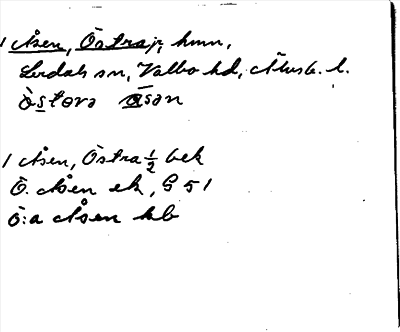 1 Åsen, Östra, hmn,
Lerdals sn, Valbo hd, Älvsb. l.
òstəra åsən
1 Åsen, Östra 1/2 bek
Ö. Åsen ek, G 51
Ö:a Åsen kb